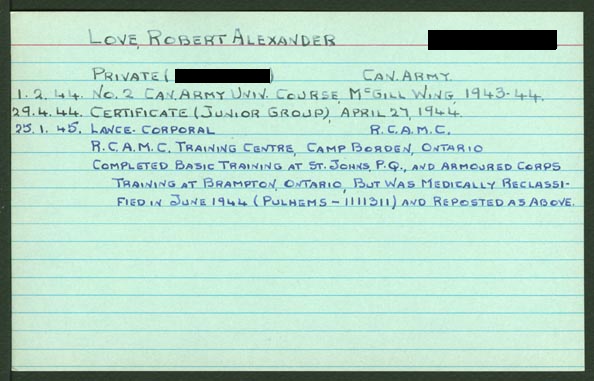 LOVE, ROBERT ALEXANDER
PRIVATE ( ) CAN. ARMY.
1. 2. 44. NO. 2 CAN. ARMY UNIV. COURSE, McGILL WING, 1943-44.
29. 4. 44. CERTIFICATE (JUNIOR GROUP), APRIL 27, 1944.
25. 1. 45. LANCE-CORPORAL R.C.A.M.C.
R.C.A.M.C. TRAINING CENTRE, CAMP BORDEN, ONTARIO
COMPLETED BASIC TRAINING AT ST. JOHNS, P.Q., AND ARMOURED CORPS
TRAINING AT BRAMPTON, ONTARIO, BUT WAS MEDICALLY RECLASSI-
FIED IN JUNE 1944 (PULHEMS - 1111311) AND REPOSTED AS ABOVE.